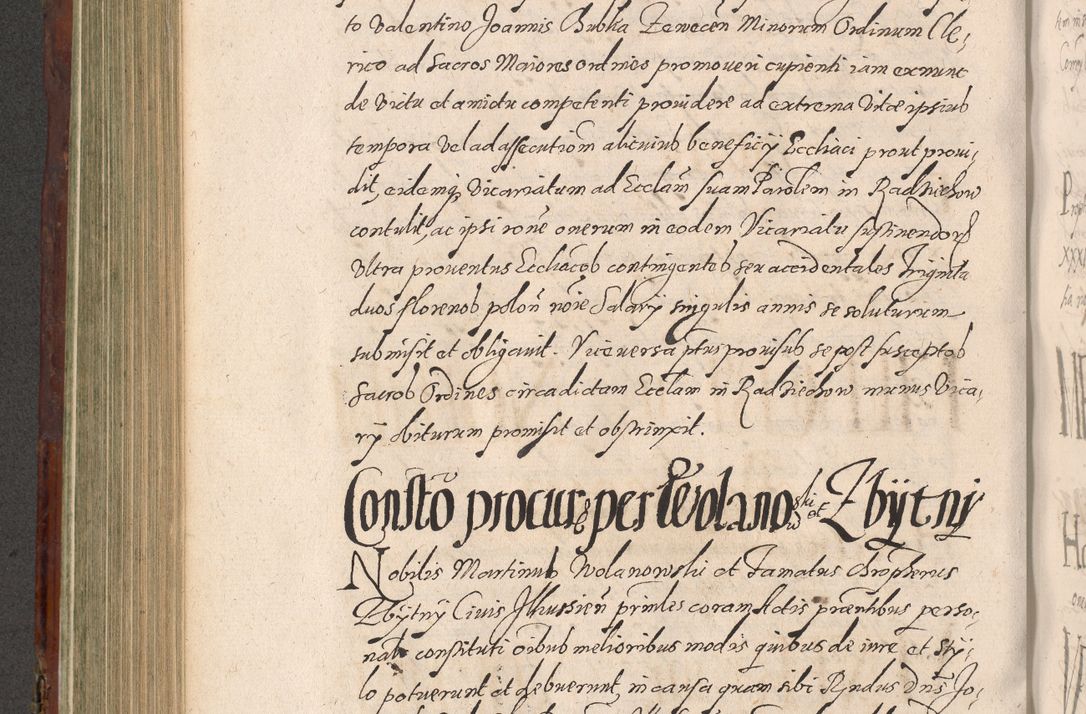 to Valentino Joannis Bubka Zewecen̄ Minorum Ordinum Cle,
rico ad sacros Maiores ordines promoveri cupienti iam exnunc
de Victu et amictu competenti providere ad extrema Vitæ ipsius
tempora Vel ad assecutiom̄ alicuius beneficÿ Ecclīaci prout provi,
dit, eidemq̨ Vicariatum ad Ecclam̄ suam Parolem in Radziechow
contulit, ac ipsi rōne onerum in eodem Vicariatu sustinendorꝝ
Vltra proventus Ecclīacos contingentes seu accidentales Triginta
duos florenos polon̄ nōīe Salarÿ singulis annis se soluturum
submisit et obligavit. Vice versa pt̄us provisus se post susceptos
sacros Ordines circa dictam Ecclam in Radziechow munus Vica,
rÿ obiturum promisit et obstrinxit.
Constō procur: per Wolanowski et Zbÿtnÿ
Nobilis Martinus Wolanowski et famatus Chrōpherus
Zbÿtnÿ Civis Ilkussien̄ prīn̄les coram Actis præn̄tibus perso,
nalr̄ constituti oībus melioribus modis quibus de iure et stÿ,
lo potuerunt et debuerunt, in causa quam sibi Rn̄dus Dn̄s Jo,